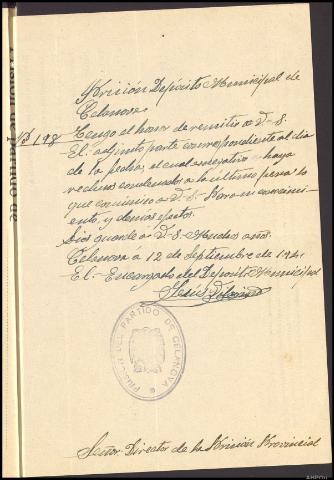 Prisión Depósito Municipal de
Celanova
Nº 198
Tengo el honor de remitir a V.S.
El adjunto parte correspondiente al dia
de la fecha, el cual haya
reclusos condenados a la última pena lo
que comunico a V.S. Para su conocimi-
ento, y demas efectos.
Dios guarde a V.S. Muchos años.
Celanova á 12 de Septiembre de 1941
El Encargado del Deposito Municipal
Jesús
PRISION DEL PARTIDO DE CELANOVA
Señor Director de la Prisión Provincial